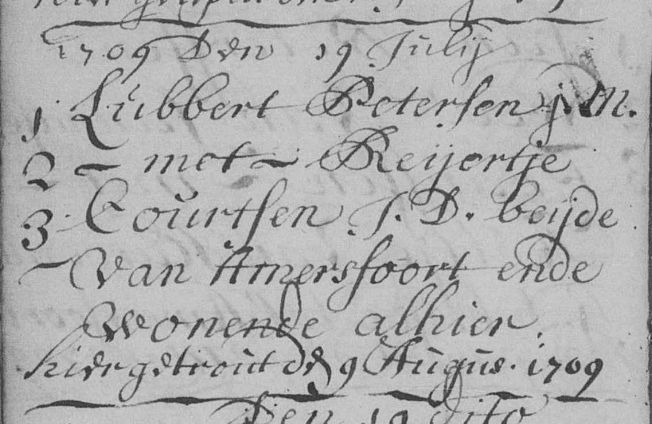 1709 Den 19 Julij
1 Lubbert Petersen j M.
2 - met - Reijertje
3 Courtsen J. D. beijde
- van Amersfoort ende
wonende alhier.
hier getrout de 9 Augus. 1709
Den 19 dito